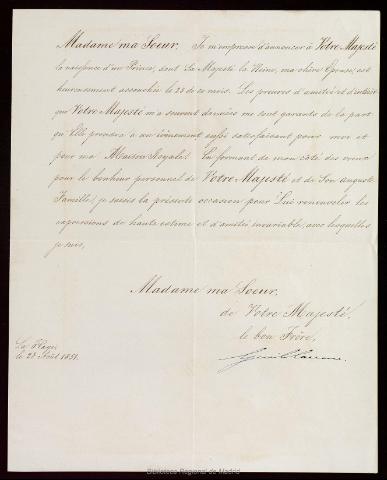 Madame ma Soeur, Je m'empresse d'annoncer à Votre Majesté
la naissance d'un Prince, dont Sa Majesté la Reine, ma chère Epouse, est
heureusement accouchée le 25 de ce mois. Les preuves d'amitié et d'intérêt
que Votre Majesté m'a souvent données me sont garants de la part
qu'Elle prendra à un événement aussi satisfaisant pour moi et
pour ma Maison Royale. En formant de mon côté des voeux
pour le bonheur personnel de Votre Majesté et de Son auguste
Famille, je saisis la présente occasion pour Lui renouveler les
expressions de haute estime et d'amitié invariable, avec lesquelles
je suis,
Madame ma Soeur,
de Votre Majesté,
le bon Frère,
La Haye,
le 28 Août 1851.
Biblioteca Regional de Madrid